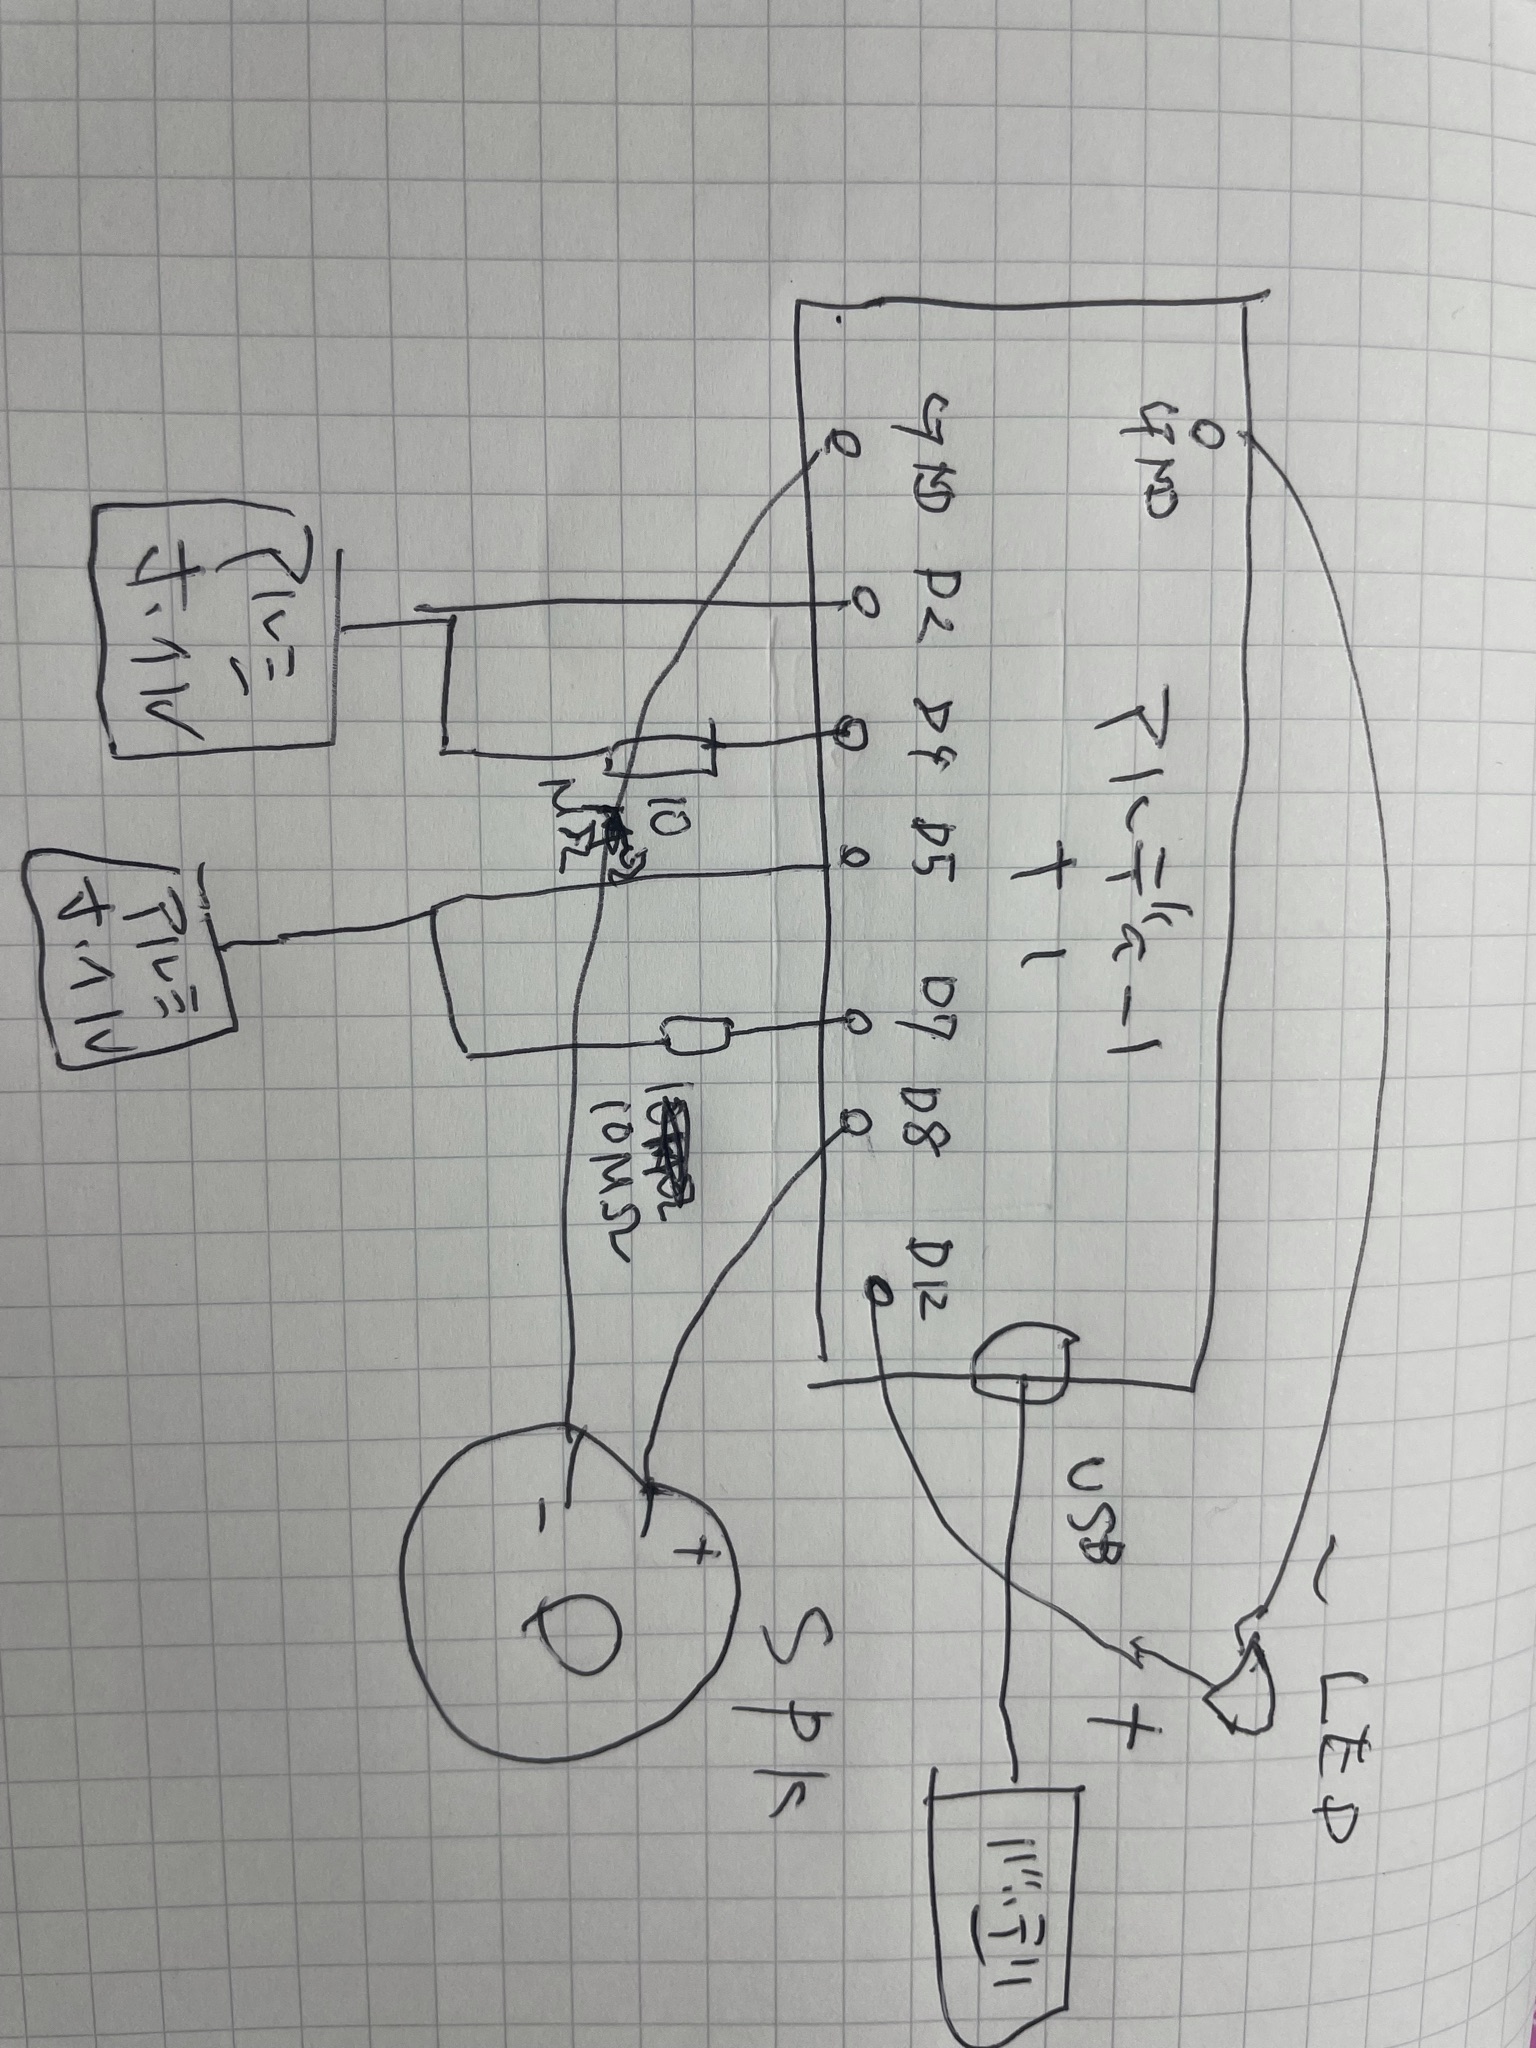 - LED
GND
アルデュ-1
+1
USB
+
バッテリ
GND D2 D4 D5 D7 D8 D12
SPK
+
-
10
MΩ
10MΩ
アルミ
ホイル
アルミ
ホイル